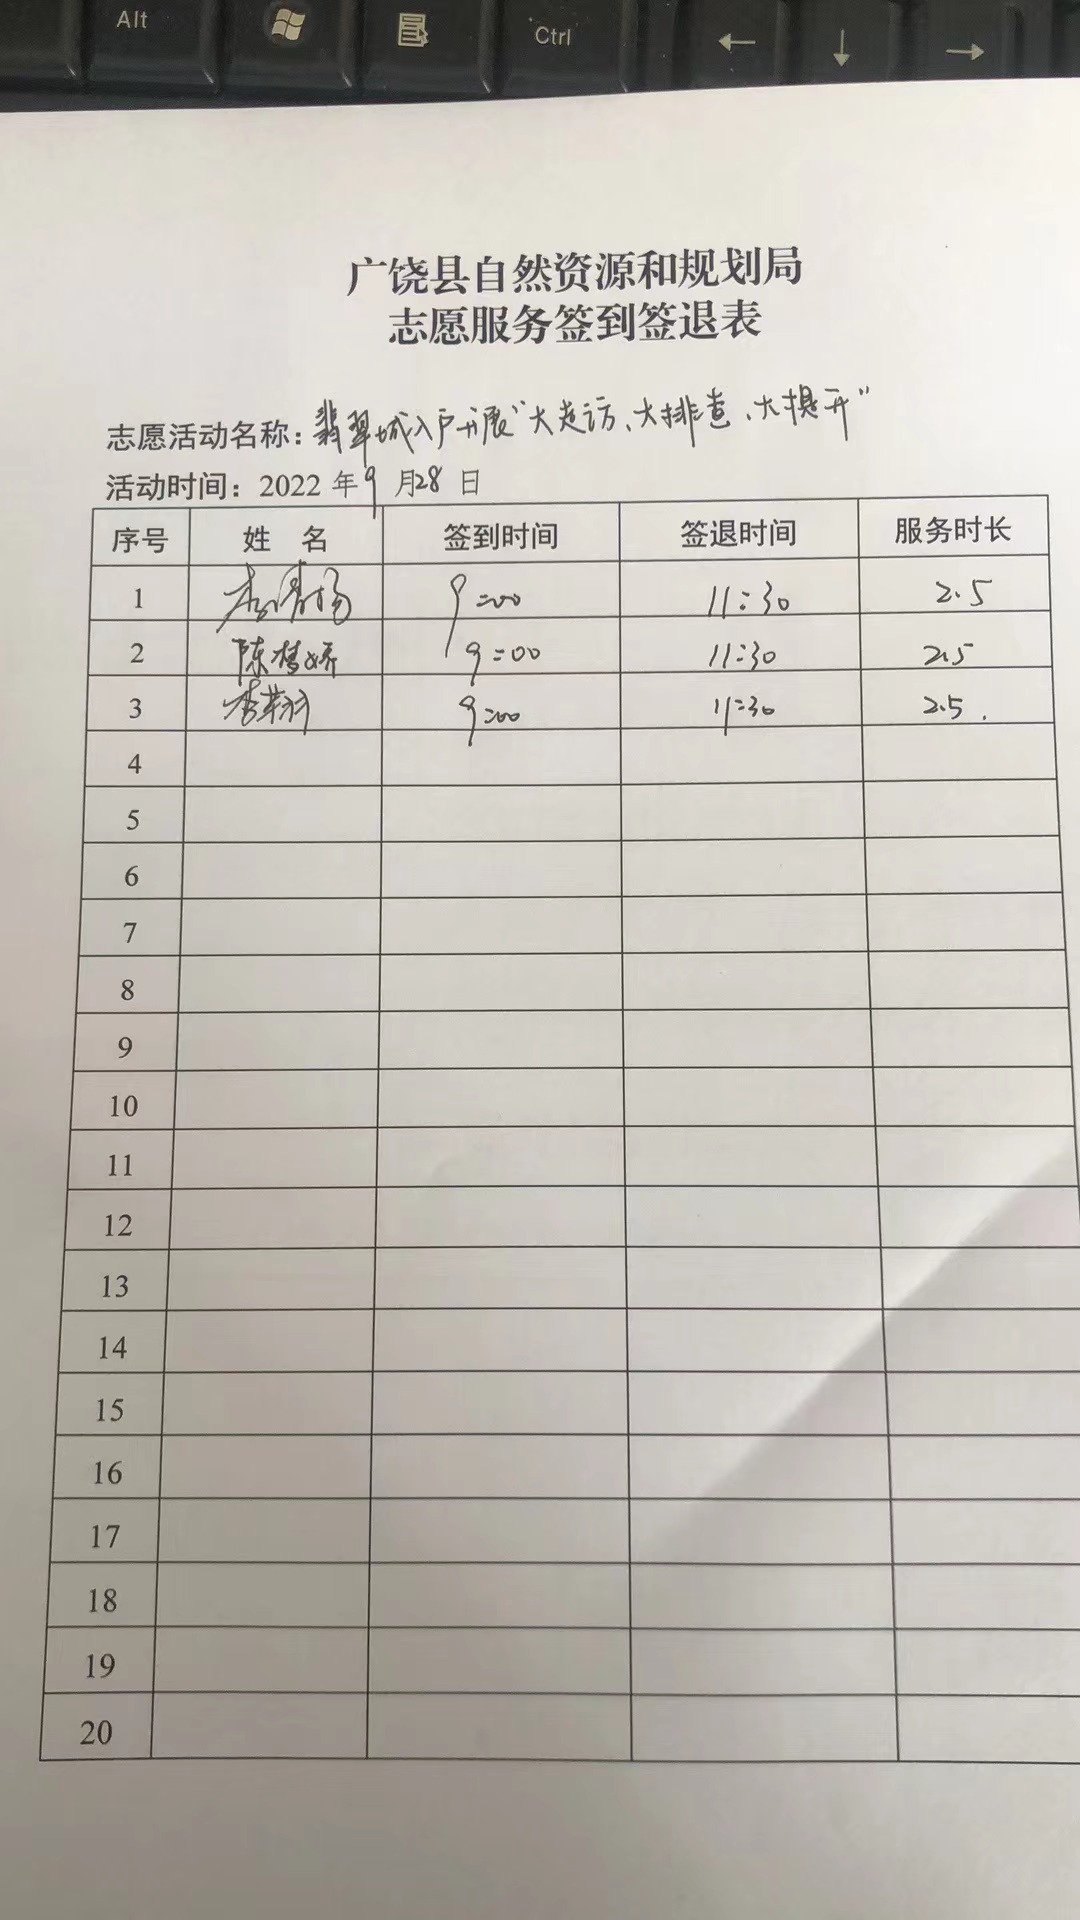 Alt
Ctrl
← ↓ →
广饶县自然资源和规划局
志愿服务签到签退表
志愿活动名称：翡翠城入户开展“大走访、大排查、大提升”
活动时间：2022年9月28日
序号 姓名 签到时间 签退时间 服务时长
1 9:00 11:30 2.5
2 陈梦娇 9:00 11:30 2.5
3 9:00 11:30 2.5
4
5
6
7
8
9
10
11
12
13
14
15
16
17
18
19
20